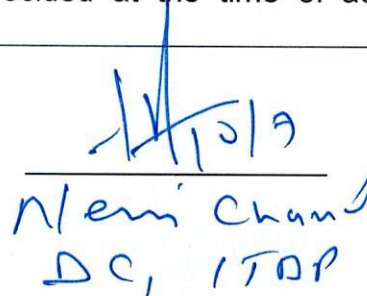 at the time of
10/9
Nemi Chand
DC, ITDP